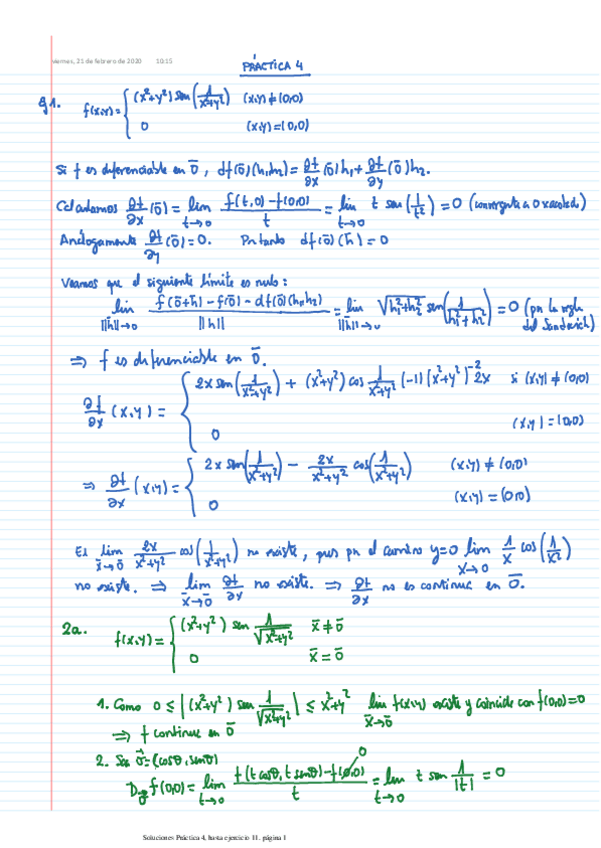 viernes, 21 de febrero de 2020 10:15
PRÁCTICA 4
Ej 1. f(x,y)= { (x²+y²) sen(1/(x²+y²)) (x,y)≠(0,0)
0 (x,y)=(0,0)
Si f es diferenciable en 0̄, df(0̄)(h₁,h₂)= ∂f/∂x (0̄)h₁+ ∂f/∂y (0̄)h₂.
Calculamos ∂f/∂x (0̄) = lim t→0 (f(t,0)-f(0,0))/t = lim t→0 t sen(1/t²) = 0 (convergente a 0 x acotado)
Análogamente ∂f/∂y (0̄)=0. Por tanto df(0̄)(h̄)=0
Veamos que el siguiente límite es nulo:
lim ||h̄||→0 (f(0̄+h̄)-f(0̄)-df(0̄)(h₁,h₂))/||h̄|| = lim ||h̄||→0 √(h₁²+h₂²) sen(1/(h₁²+h₂²)) = 0 (por la regla del Sandwich)
⇒ f es diferenciable en 0̄.
∂f/∂x (x,y) = { 2x sen(1/(x²+y²)) + (x²+y²) cos 1/(x²+y²) (-1)(x²+y²)⁻² 2x si (x,y)≠(0,0)
0 (x,y)=(0,0)
⇒ ∂f/∂x (x,y) = { 2x sen(1/(x²+y²)) - 2x/(x²+y²) cos(1/(x²+y²)) (x,y)≠(0,0)
0 (x,y)=(0,0)
El lim x̄→0̄ 2x/(x²+y²) cos(1/(x²+y²)) no existe, pues por el camino y=0 lim x→0 1/x cos(1/x²)
no existe. ⇒ lim x̄→0̄ ∂f/∂x no existe. ⇒ ∂f/∂x no es continua en 0̄.
2a. f(x,y)= { (x²+y²) sen 1/√(x²+y²) x̄≠0̄
0 x̄=0̄
1. Como 0 ≤ |(x²+y²) sen 1/√(x²+y²)| ≤ x²+y² lim x̄→0̄ f(x,y) existe y coincide con f(0,0)=0
⇒ f continua en 0̄
2. Sea v⃗=(cosθ, senθ)
D f(0,0)= lim t→0 (f(t cosθ, t senθ)-f(0,0))/t = lim t→0 t sen 1/|t| = 0
Soluciones Práctica 4, hasta ejercicio 11. página 1